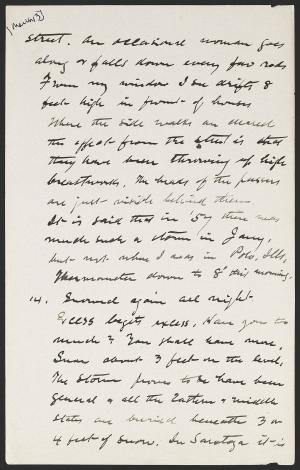 [March 13]
street. An occasional woman goes
along & falls down every few rods
From my window I see drifts 8
feet high in front of houses
Where the side walks are cleared
the effect from the street is that
they have been throwing up high
breastworks. The heads of the passers
are just visible behind them.
It is said that in '57 there was
much such a storm in Jany,
but not where I was in Polo, Ills,
Thermometer down to 8° this morning.
14. Snowed again all night.
Excess begets excess. Have you to
much? You shall have more.
Snow about 3 feet on the level.
The storm proves to have been
general & all the Eastern & middle
states are buried beneath 3 or
4 feet of snow. In Saratoga it is